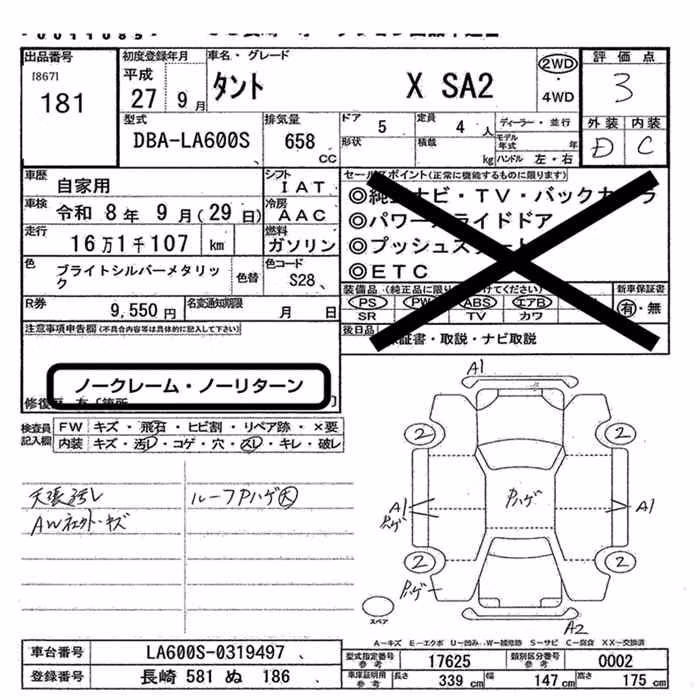 出品番号
[867]
181
初度登録年月
平成
27 9月
車名・グレード
タント X SA2
2WD
・
4WD
評価点
3
外装 内装
D C
型式
DBA-LA600S
排気量
658
CC
ドア
5
定員
4 人
ディーラー・並行
形状
積載
kg
モデル
年式 年
ハンドル 左・右
車歴
自家用
シフト
IAT
車検
令和 8年 9月(29日)
冷房
AAC
走行
16万1千107 km
燃料
ガソリン
色
ブライトシルバーメタリック
色替
色コード
S28、
R券
9,550円
名変通知期限
月 日
セールスポイント(正常に機能するものに限ります)
◎純正ナビ・TV・バックカメラ
◎パワースライドドア
◎プッシュスタート
◎ETC
装備品(純正品に限り 付けてください)
PS PW ABS エアB
SR TV カワ
新車保証書
有・無
後日品
保証書・取説・ナビ取説
注意事項申告欄(不具合内容等は具体的に記入して下さい)
ノークレーム・ノーリターン
修復歴 有 [箇所 ]
検査員
記入欄
FW キズ・飛石・ヒビ割・リペア跡・×要
内装 キズ・汚レ・コゲ・穴・スレ・キレ・破レ
天張汚レ
AW社外・キズ
ルーフPハゲ大
A1
2
2
A1
Pハゲ
Pハゲ
A1
2
2
Pハゲ
A2
スペア
A-キズ E-エクボ U-凹み W-補修跡 S-サビ C-腐食 XX-交換済
車台番号
LA600S-0319497
型式指定番号
参考
17625
類別区分番号
参考
0002
登録番号
長崎 581 ぬ 186
車庫証明用
参考
長さ
339 cm
幅
147 cm
高さ
175 cm